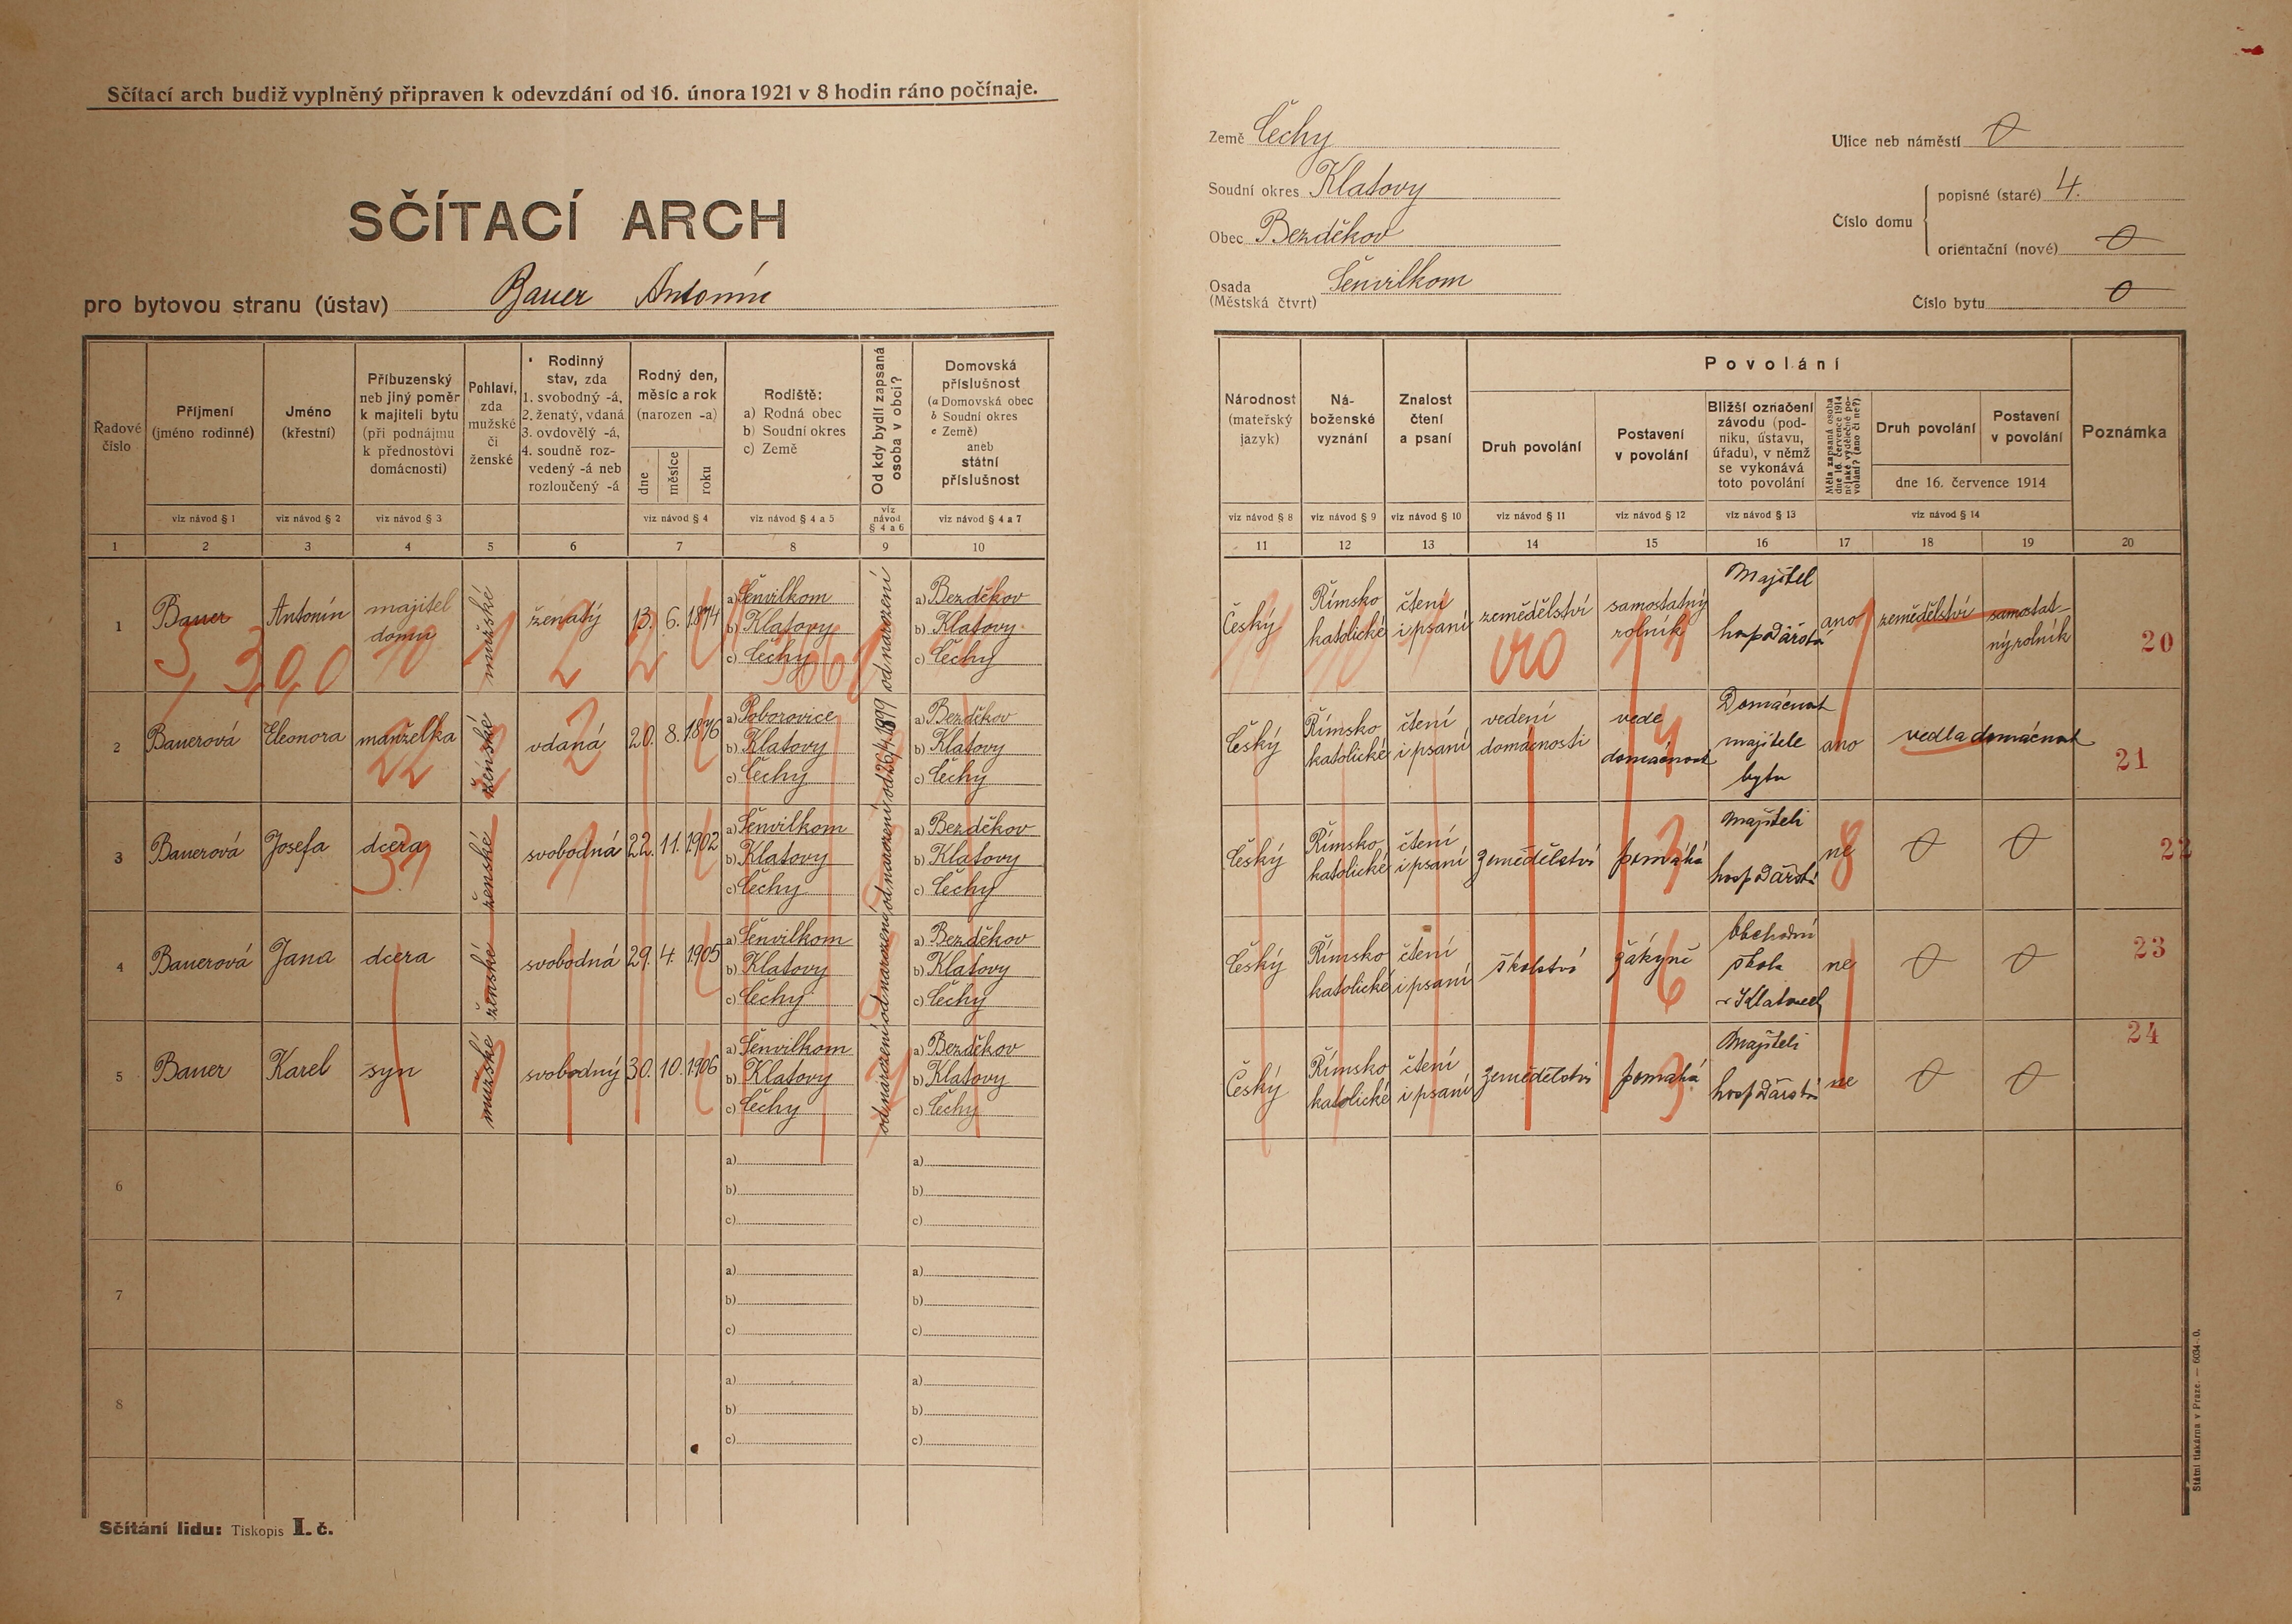 Sčítací arch budiž vyplněný připraven k odevzdání od 16. února 1921 v 8 hodin ráno počínaje.
SČÍTACÍ ARCH
pro bytovou stranu (ústav) Bauer Antonín
Země Čechy
Soudní okres Klatovy
Obec Bezděkov
Osada Šenvilkom
(Městská čtvrt)
Ulice neb náměstí 0
Číslo domu
popisné (staré) 4.
orientační (nové) 0
Číslo bytu 0
Řadové číslo
Příjmení (jméno rodinné)
Jméno (křestní)
Příbuzenský neb jiný poměr k majiteli bytu (při podnájmu k přednostovi domácnosti)
Pohlaví, zda mužské či ženské
Rodinný stav, zda 1. svobodný -á, 2. ženatý, vdaná 3. ovdovělý -á, 4. soudně rozvedený -á neb rozloučený -á
Rodný den, měsíc a rok (narozen -a)
dne měsíce roku
Rodiště: a) Rodná obec b) Soudní okres c) Země
Od kdy bydlí zapsaná osoba v obci?
Domovská příslušnost (a Domovská obec b Soudní okres c Země) aneb státní příslušnost
viz návod § 1 viz návod § 2 viz návod § 3 viz návod § 4 viz návod § 4 a 5 viz návod § 4 a 6 viz návod § 4 a 7
1 2 3 4 5 6 7 8 9 10
Národnost (mateřský jazyk)
Náboženské vyznání
Znalost čtení a psaní
Povolání
Druh povolání
Postavení v povolání
Bližší označení závodu (podniku, ústavu, úřadu), v němž se vykonává toto povolání
Měla zapsaná osoba dne 16. července 1914 nějaké výdělečné povolání? (ano či ne?)
Druh povolání
Postavení v povolání
dne 16. července 1914
Poznámka
viz návod § 8 viz návod § 9 viz návod § 10 viz návod § 11 viz návod § 12 viz návod § 13 viz návod § 14
11 12 13 14 15 16 17 18 19 20
1 Bauer Antonín majitel domu mužské ženatý 13. 6. 1874 a) Šenvilkom b) Klatovy c) Čechy od narození a) Bezděkov b) Klatovy c) Čechy
Český Římsko katolické čtení i psaní zemědělství samostatný rolník Majitel hospodářství ano zemědělství samostatný rolník 20
2 Bauerová Eleonora manželka ženské vdaná 20. 8. 1876 a) Poborovice b) Klatovy c) Čechy od 26/4.1899 a) Bezděkov b) Klatovy c) Čechy
Český Římsko katolické čtení i psaní vedení domácnosti vede domácnost Domácnost majitele bytu ano vedla domácnost 21
3 Bauerová Josefa dcera ženské svobodná 22. 11. 1902 a) Šenvilkom b) Klatovy c) Čechy od narození a) Bezděkov b) Klatovy c) Čechy
Český Římsko katolické čtení i psaní zemědělství pomáhá Majiteli hospodářství ne 0 0 22
4 Bauerová Jana dcera ženské svobodná 29. 4. 1905 a) Šenvilkom b) Klatovy c) Čechy od narození a) Bezděkov b) Klatovy c) Čechy
Český Římsko katolické čtení i psaní školství žákyně Obchodní škola v Klatovech ne 0 0 23
5 Bauer Karel syn mužské svobodný 30. 10. 1906 a) Šenvilkom b) Klatovy c) Čechy od narození a) Bezděkov b) Klatovy c) Čechy
Český Římsko katolické čtení i psaní zemědělství pomáhá Majiteli hospodářství ne 0 0 24
6 a) b) c) a) b) c)
7 a) b) c) a) b) c)
8 a) b) c) a) b) c)
Sčítání lidu: Tiskopis I. č.
Státní tiskárna v Praze. — 6034-0.